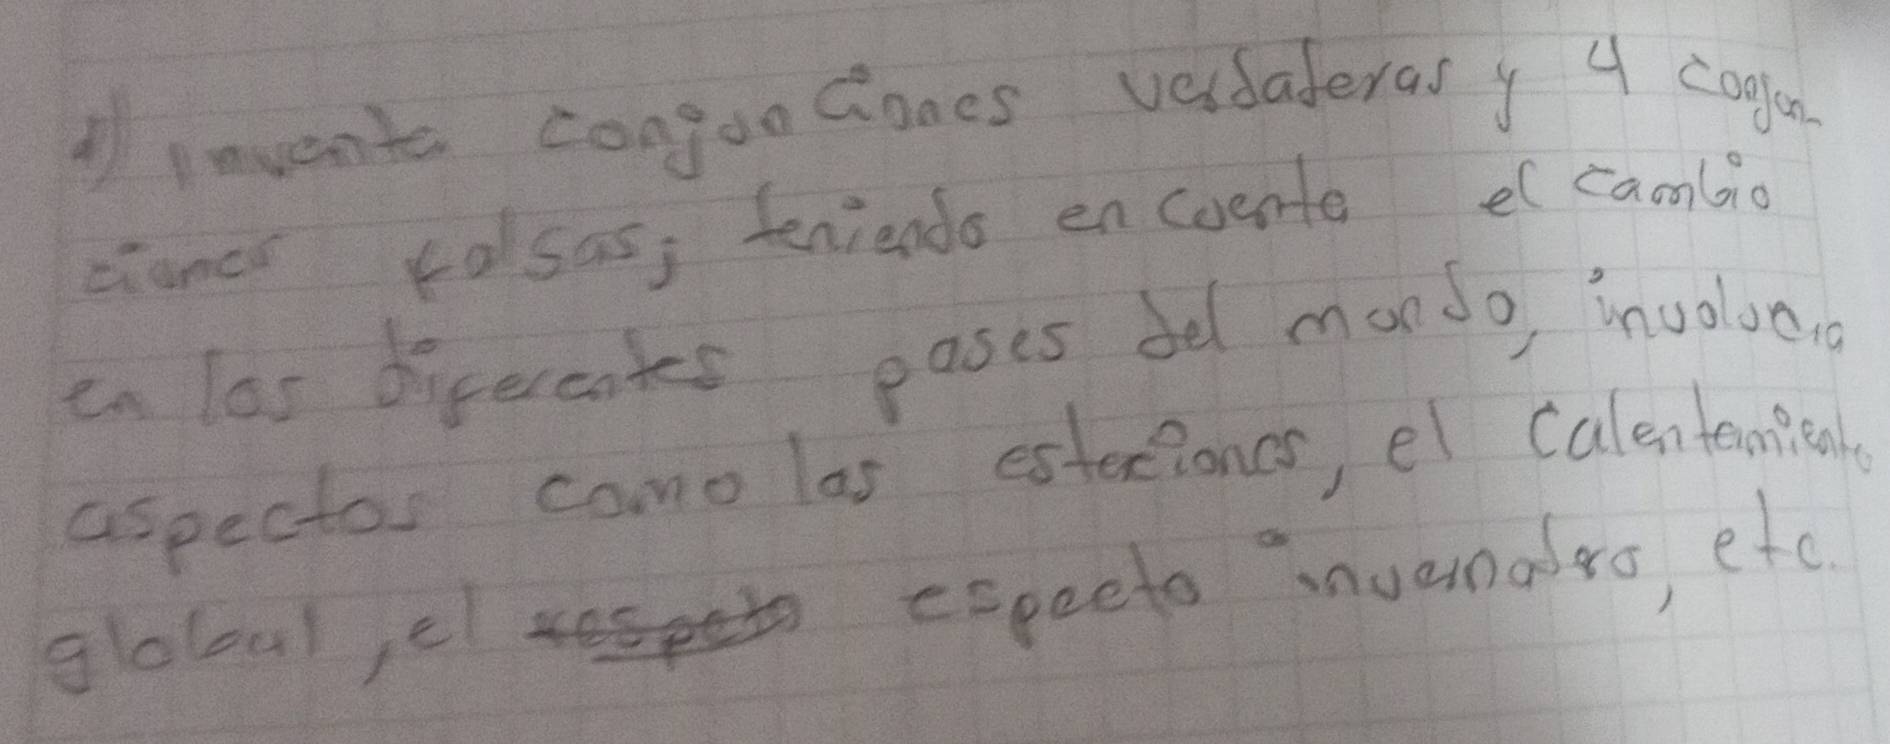 1) inventa conjunciones verdaderas y 4 conjun-
ciones falsas; teniendo en cuenta el cambio
en los diferentes pases del mundo, involucra
aspectos como las estaciones, el calentamiento
global, el especto invernadero, etc.